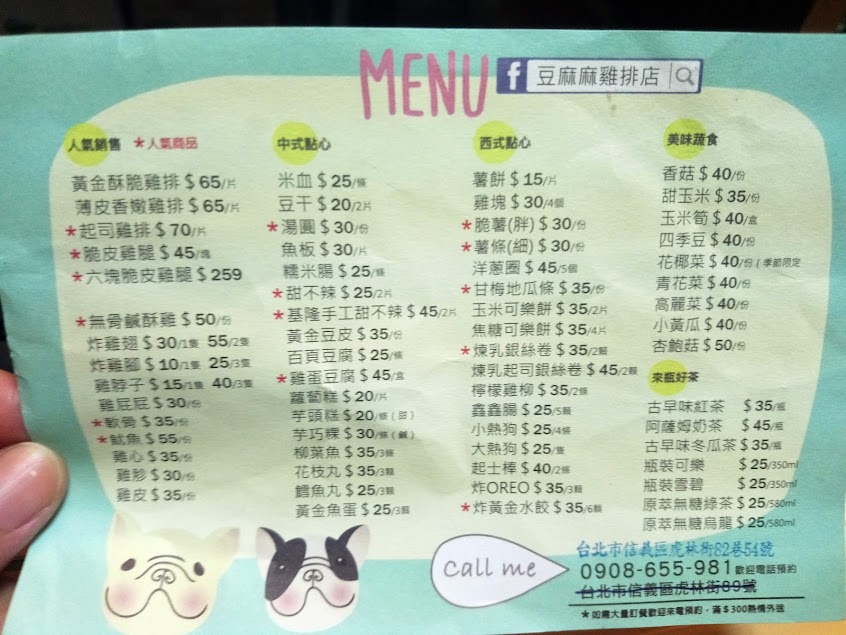 MENU
f 豆麻麻雞排店
人氣銷售 *人氣商品
黃金酥脆雞排 $65/片
薄皮香嫩雞排 $65/片
*起司雞排 $70/片
*脆皮雞腿 $45/塊
*六塊脆皮雞腿 $259
*無骨鹹酥雞 $50/份
炸雞翅 $30/1隻 55/2隻
炸雞腳 $10/1隻 25/3隻
雞脖子 $15/1隻 40/3隻
雞屁屁 $30/份
*軟骨 $35/份
*魷魚 $55/份
雞心 $35/份
雞胗 $30/份
雞皮 $35/份
中式點心
米血 $25/條
豆干 $20/2片
*湯圓 $30/份
魚板 $30/片
糯米腸 $25/條
*甜不辣 $25/2片
*基隆手工甜不辣 $45/2片
黃金豆皮 $35/份
百頁豆腐 $25/條
*雞蛋豆腐 $45/盒
蘿蔔糕 $20/片
芋頭糕 $20/條(甜)
芋巧粿 $30/條(鹹)
柳葉魚 $35/3條
花枝丸 $35/3顆
鱈魚丸 $25/3顆
黃金魚蛋 $25/3顆
西式點心
薯餅 $15/片
雞塊 $30/4個
*脆薯(胖) $30/份
*薯條(細) $30/份
洋蔥圈 $45/5個
*甘梅地瓜條 $35/份
玉米可樂餅 $35/2片
焦糖可樂餅 $35/4片
*煉乳銀絲卷 $35/2顆
煉乳起司銀絲卷 $45/2顆
檸檬雞柳 $35/2條
鑫鑫腸 $25/5顆
小熱狗 $25/4條
大熱狗 $25/隻
起士棒 $40/2條
炸OREO $35/3顆
*炸黃金水餃 $35/6顆
美味蔬食
香菇 $40/份
甜玉米 $35/份
玉米筍 $40/盒
四季豆 $40/份
花椰菜 $40/份(季節限定
青花菜 $40/份
高麗菜 $40/份
小黃瓜 $40/份
杏鮑菇 $50/份
來瓶好茶
古早味紅茶 $35/瓶
阿薩姆奶茶 $45/瓶
古早味冬瓜茶 $35/瓶
瓶裝可樂 $25/350ml
瓶裝雪碧 $25/350ml
原萃無糖綠茶 $25/580ml
原萃無糖烏龍 $25/580ml
call me
台北市信義區虎林街82巷54號
0908-655-981 歡迎電話預約
台北市信義區虎林街89號
*如需大量訂餐歡迎來電預約,滿$300熱情外送